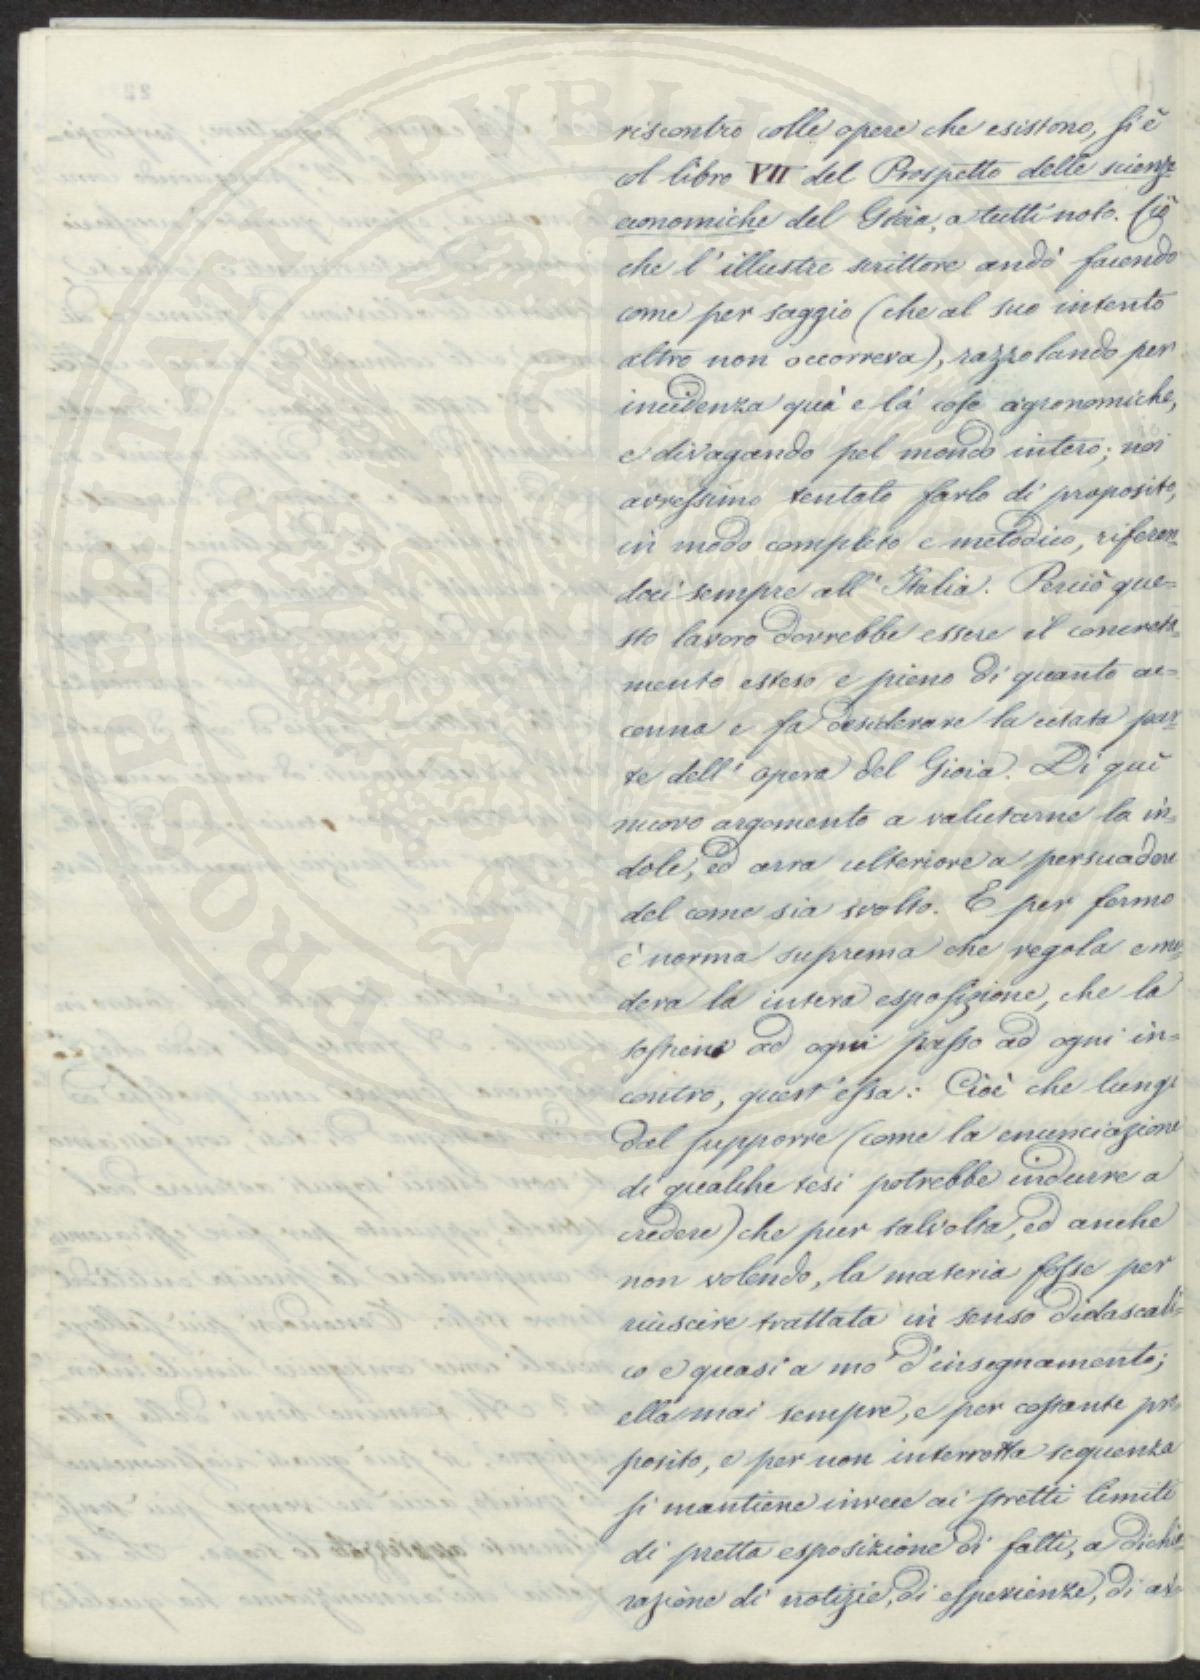 riscontro colle opere che esistono, si è
col libro VII del Prospetto delle scienze
economiche del Gioia, a tutti noto. Ciò
che l'illustre scrittore andò facendo
come per saggio (che al suo intento
altro non occorreva), razzolando per
incidenza quà e là cose agronomiche,
e divagando pel mondo intero; noi
avressimo tentato farlo di proposito,
in modo completo e metodico, riferen-
doci sempre all'Italia. Perciò que-
sto lavoro dovrebbe essere il concreta-
mento esteso e pieno di quanto ac-
cenna e fa desiderare la citata par-
te dell'opera del Gioia. Di quì
nuovo argomento a valutarne la in-
dole, ed arra ulteriore a persuadere
del come sia svolto. E per fermo
è norma suprema che regola e mo-
dera la intera esposizione, che la
sostiene ad ogni passo ad ogni in-
contro, quest'essa: Cioè che lungi
dal supporre (come la enunciazione
di qualche tesi potrebbe indurre a
credere) che pur talvolta, ed anche
non volendo, la materia fosse per
riuscire trattata in senso didascali-
co e quasi a mo' d'insegnamento;
ella mai sempre, e per costante pro-
posito, e per non interrotta sequenza
si mantiene invece ai stretti limiti
di pretta esposizione di fatti, a dichia-
razione di notizie, di esperienze, di av-
PROSPERITATI PVBLI